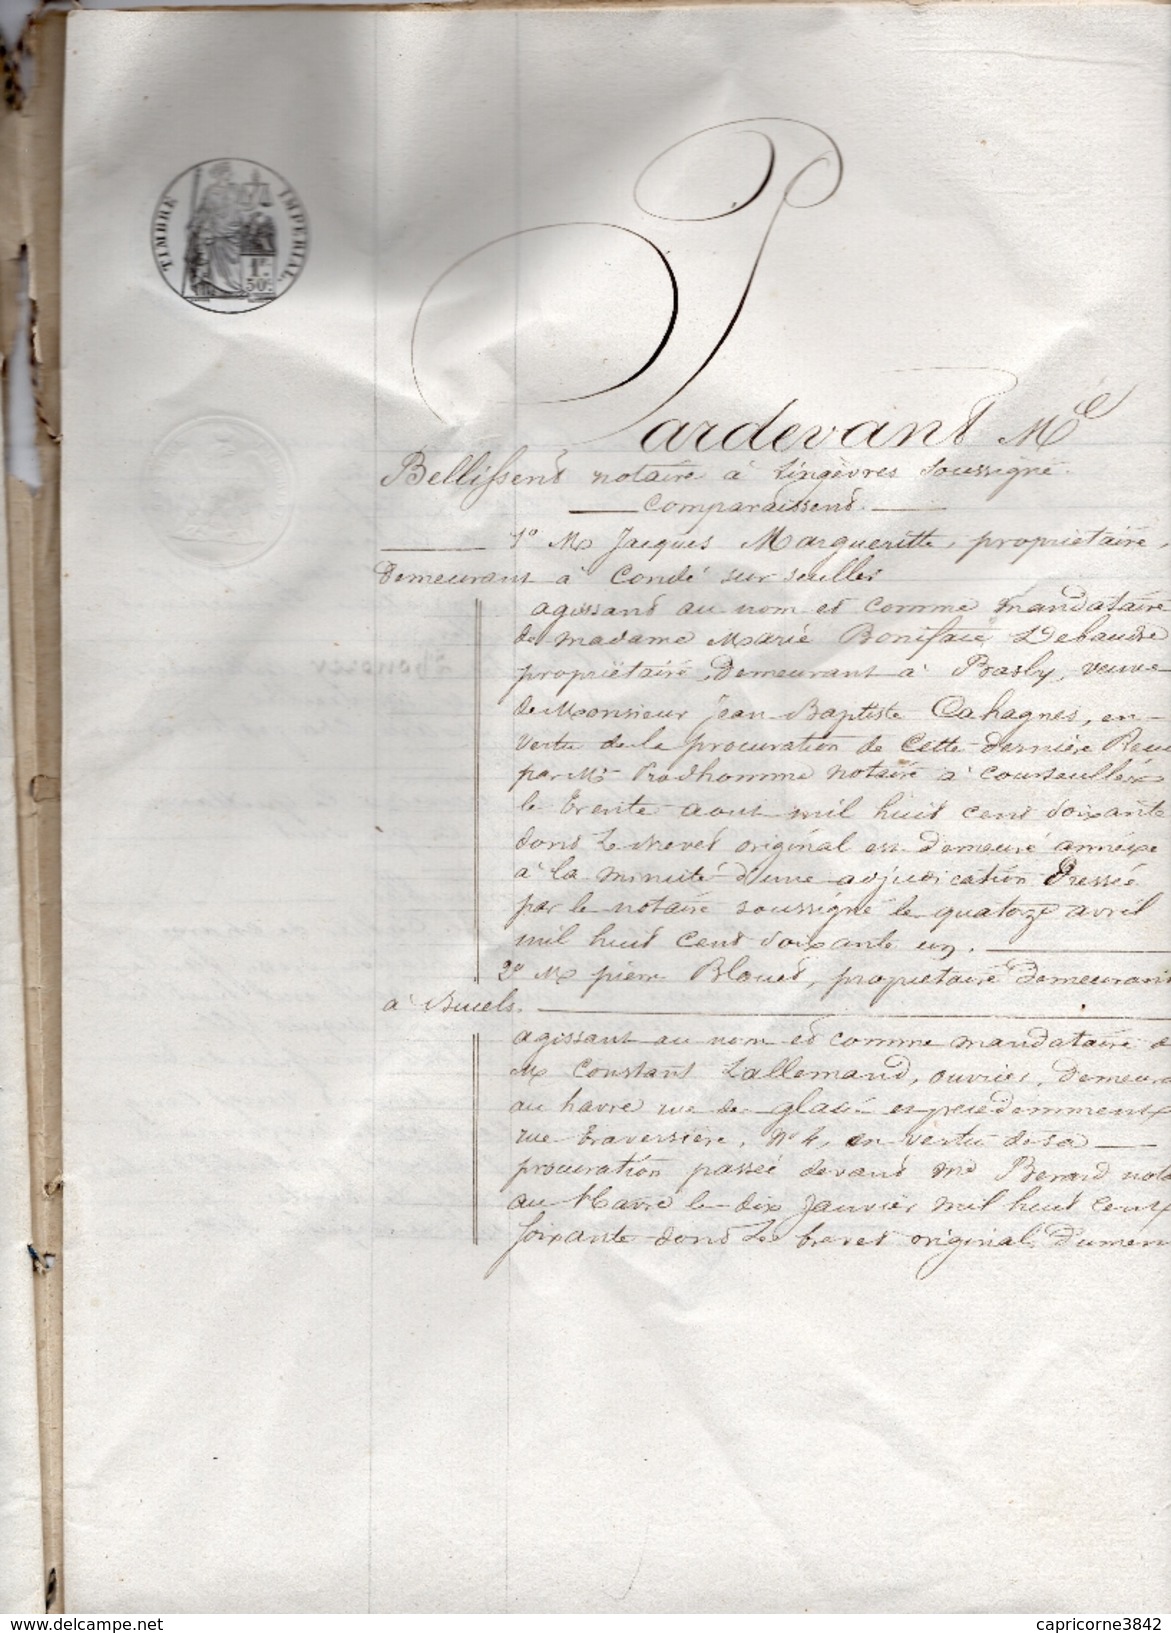 TIMBRE IMPERIAL.
1F.
50c.
Pardevant Me
Bellissent notaire à Lingèvres soussigné.
Comparaissent.
1º Mr Jacques Margueritte, propriétaire,
Demeurant à Condé sur seulles
agissant au nom et comme mandataire
de madame Marie Boniface
propriétaire, Demeurant à Basly, veuve
de Monsieur Jean Baptiste Cahagnes, en
vertu de la procuration de cette dernière Recue
par Me Prodhomme notaire à Courseulles
le trente aout mil huit cent soixante
dont le brevet original est demeuré annéxé
à la minute d'une adjudication Dressée
par le notaire soussigné le quatorze avril
mil huit cent soixante un.
2º Mr pierre Blouet, propriétaire demeurant
à Bucels.
agissant au nom et comme mandataire de
Mr Constant Lallemand, ouvrier, Demeura
au havre rue de la glacé et precedemment
rue traversière, Nº 4, en vertu de sa
procuration passée devant me Benard nota
au Havre le dix Janvier mil huit cent
soixante dont Le brevet original Dument
delcampe.net
capricorne3842